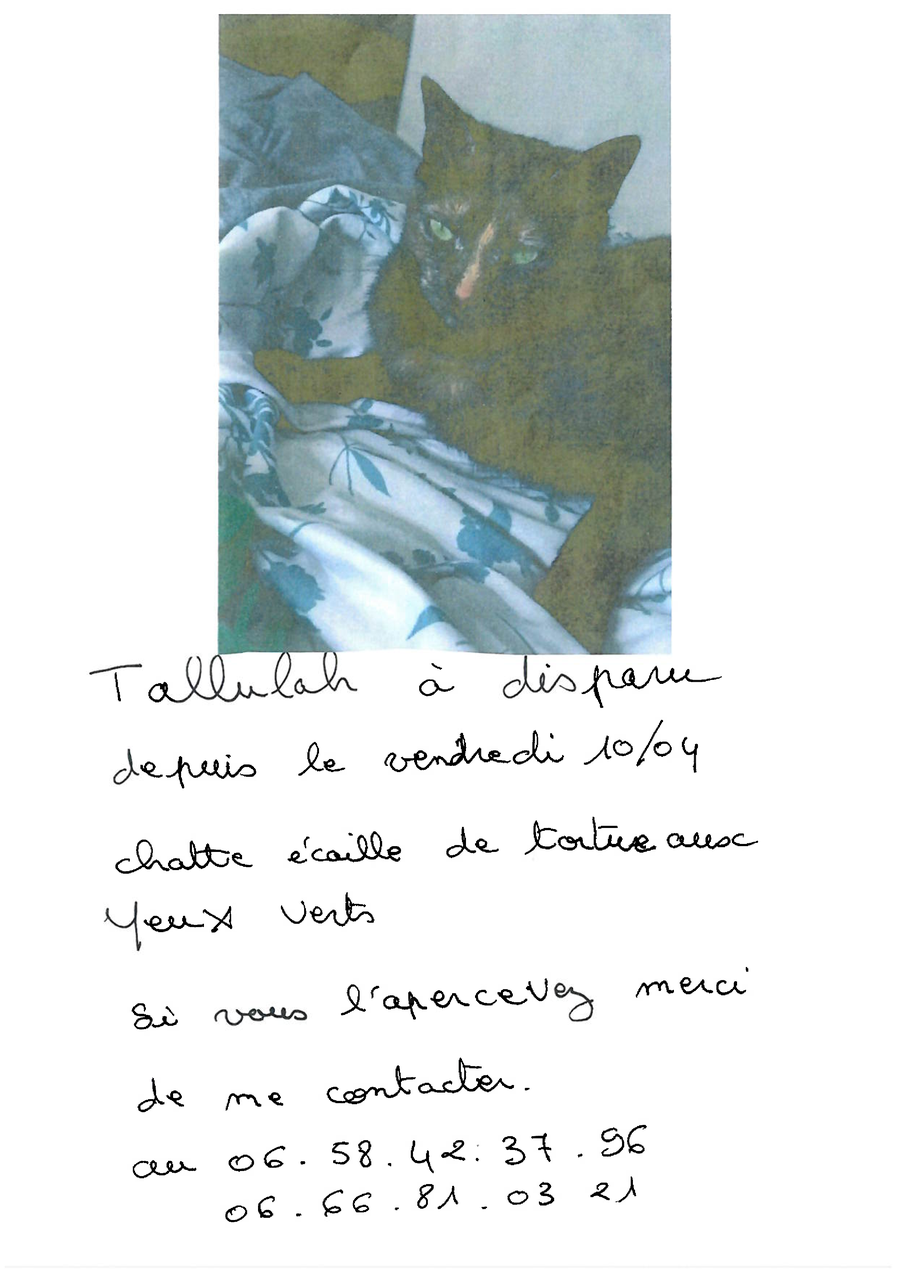 Tallulah à disparu
depuis le vendredi 10/04
chatte écaille de tortue aux
Yeux verts
Si vous l'apercevez merci
de me contacter.
au 06.58.42.37.96
06.66.81.03 21